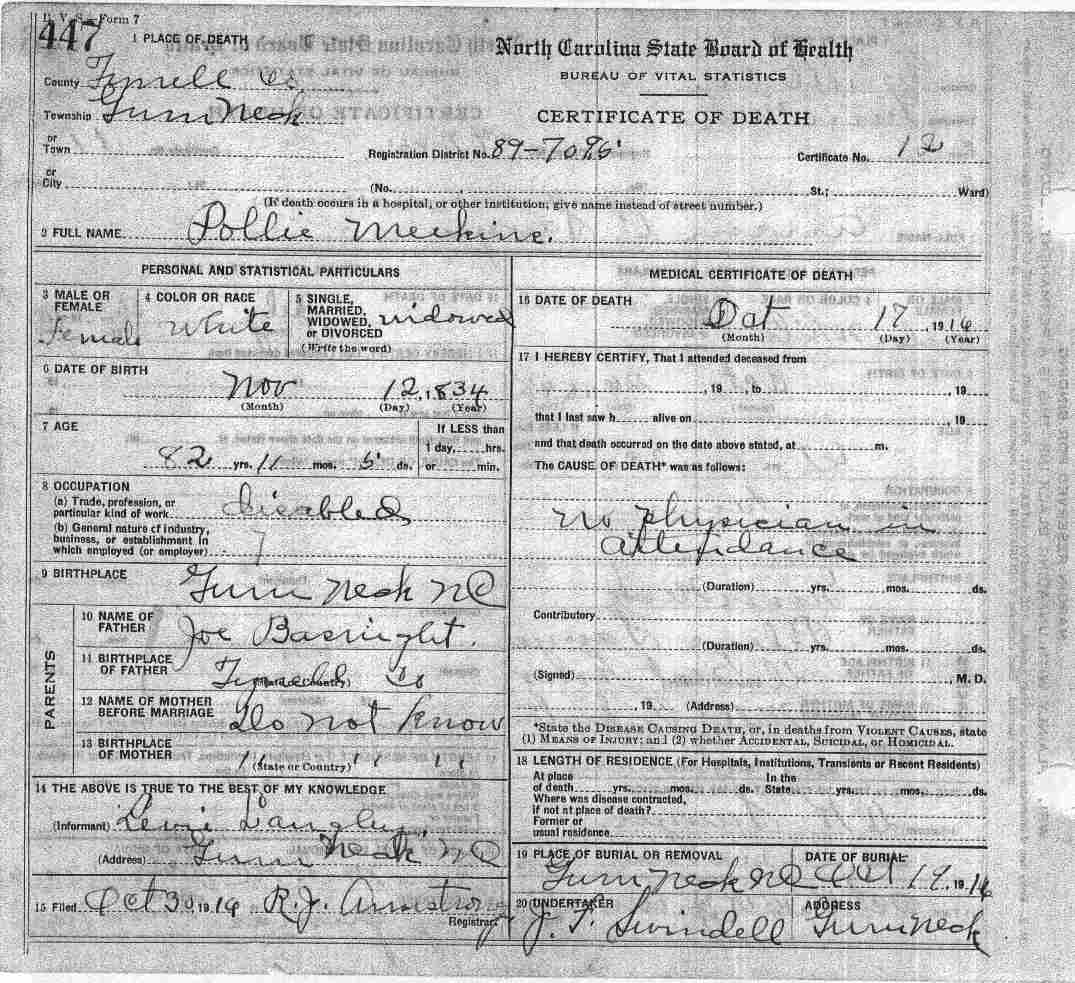 B. V. S.—Form 7
447
1 PLACE OF DEATH
North Carolina State Board of Health
BUREAU OF VITAL STATISTICS
County Tyrrell Co
Township Gum Neck
CERTIFICATE OF DEATH
or Town
Registration District No. 89-7095
Certificate No. 12
or City (No. , St.; Ward)
(If death occurs in a hospital, or other institution, give name instead of street number.)
2 FULL NAME Pollie Meekins.
PERSONAL AND STATISTICAL PARTICULARS
3 MALE OR FEMALE Female
4 COLOR OR RACE White
5 SINGLE, MARRIED, WIDOWED, or DIVORCED widowed
(Write the word)
6 DATE OF BIRTH
Nov 12, 1834
(Month) (Day) (Year)
7 AGE
If LESS than
82 yrs. 11 mos. 5 ds.
1 day, hrs.
or min.
8 OCCUPATION
(a) Trade, profession, or particular kind of work disabled
(b) General nature of industry, business, or establishment in which employed (or employer)
9 BIRTHPLACE Gum Neck NC
PARENTS
10 NAME OF FATHER Joe Basnight.
11 BIRTHPLACE OF FATHER Tyrrell Co
12 NAME OF MOTHER BEFORE MARRIAGE Do not know
13 BIRTHPLACE OF MOTHER " " "
(State or Country)
14 THE ABOVE IS TRUE TO THE BEST OF MY KNOWLEDGE
(Informant)
(Address) Gum Neck NC
15 Filed Oct 30 1916 R. J. Armstrong
Registrar
MEDICAL CERTIFICATE OF DEATH
16 DATE OF DEATH
Oct 17, 1916
(Month) (Day) (Year)
17 I HEREBY CERTIFY, That I attended deceased from
, 19 , to , 19
that I last saw h alive on , 19
and that death occurred on the date above stated, at m.
The CAUSE OF DEATH* was as follows:
no physician in
attendance
(Duration) yrs. mos. ds.
Contributory
(Duration) yrs. mos. ds.
(Signed) , M. D.
, 19 (Address)
*State the DISEASE CAUSING DEATH, or, in deaths from VIOLENT CAUSES, state
(1) MEANS OF INJURY; and (2) whether ACCIDENTAL, SUICIDAL, or HOMICIDAL.
18 LENGTH OF RESIDENCE (For Hospitals, Institutions, Transients or Recent Residents)
At place of death yrs. mos. ds. In the State yrs. mos. ds.
Where was disease contracted,
if not at place of death?
Former or
usual residence
19 PLACE OF BURIAL OR REMOVAL
DATE OF BURIAL
Gum Neck NC Oct 19, 1916
20 UNDERTAKER
ADDRESS
J. F. Swindell Gum Neck